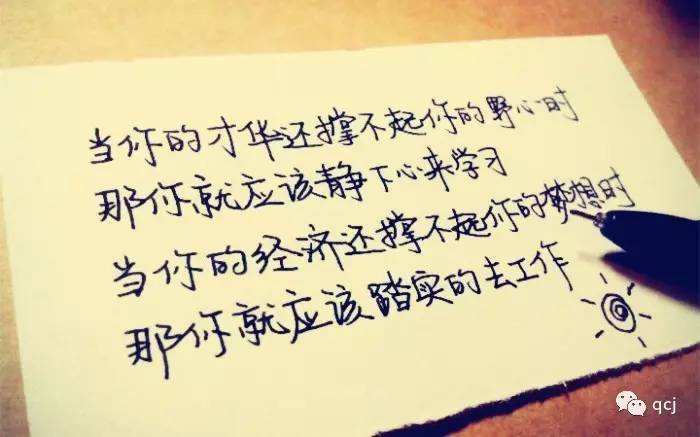 当你的才华还撑不起你的野心时
那你就应该静下心来学习
当你的经济还撑不起你的梦想时
那你就应该踏实的去工作
qcj